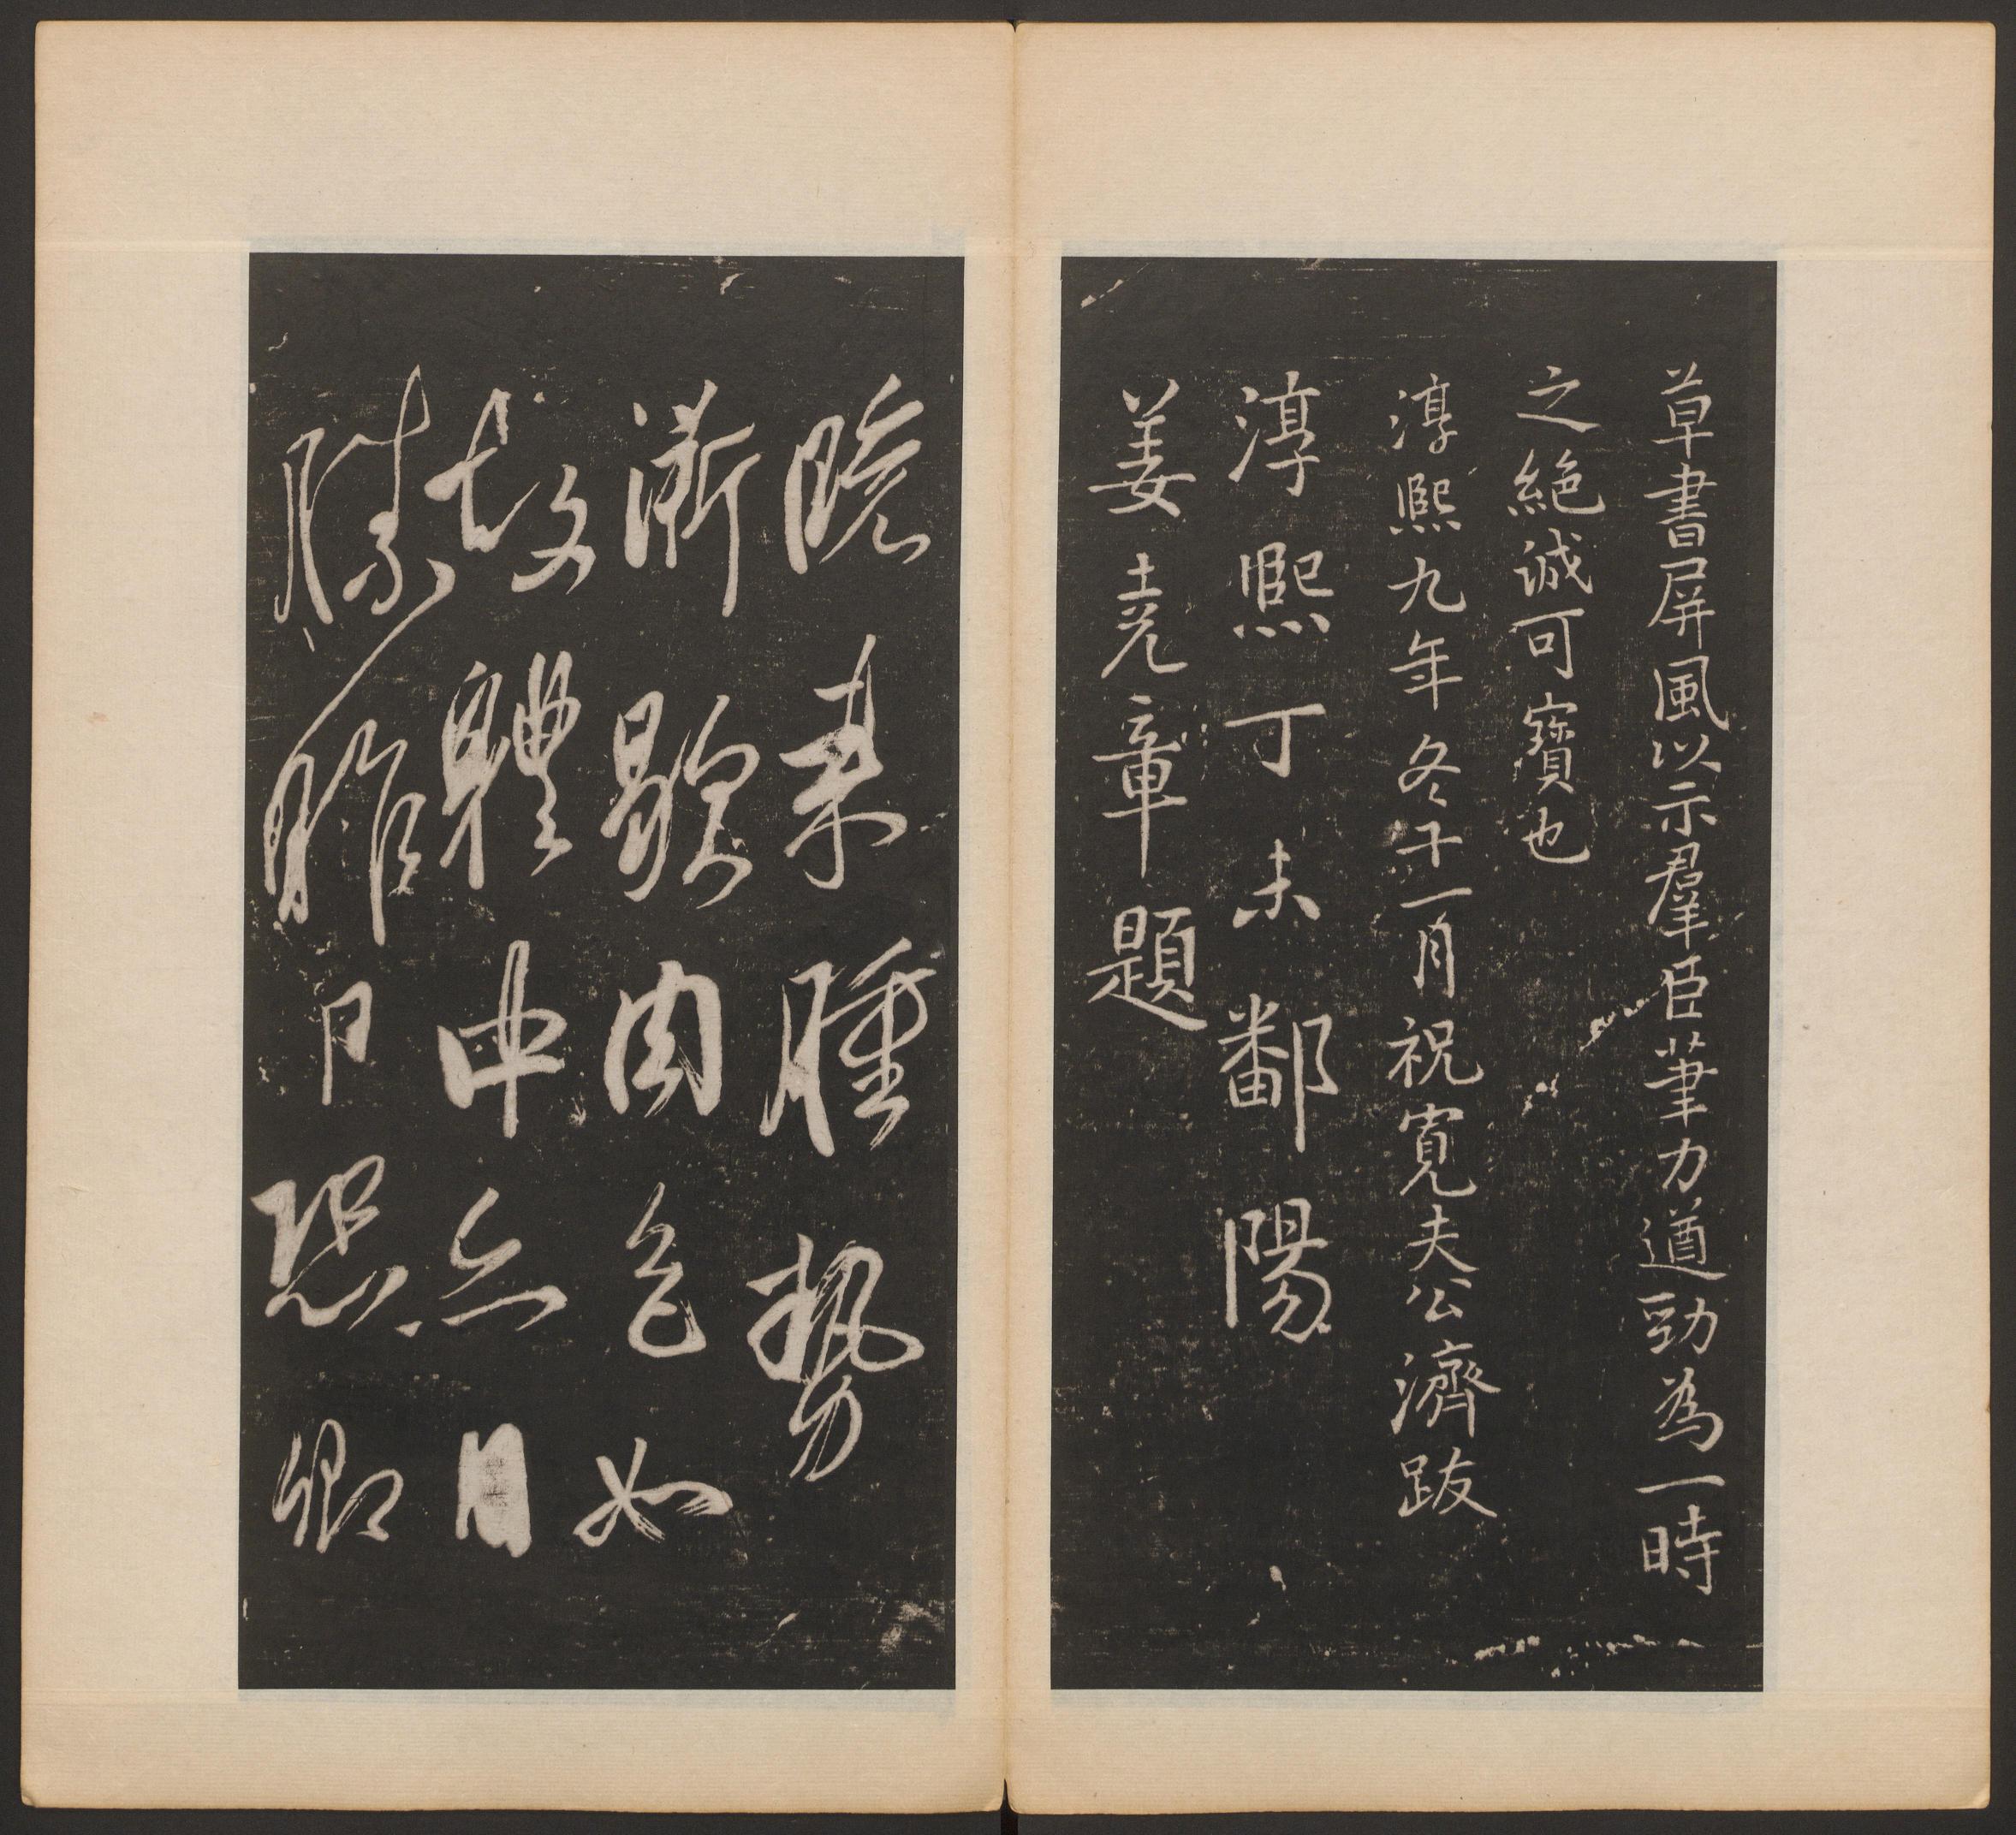 草書屏風以示羣臣筆力遒勁為一時
之絕誠可寶也
淳熙九年冬十一月祝寬夫公濟跋
淳熙丁未鄱陽
姜堯章題
晚來腫勢
漸歇肉色如
故體中亦
勝昨日恐卿